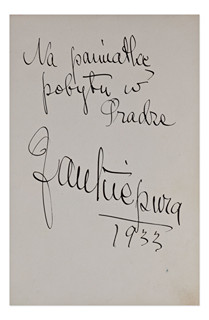 Na pamiątkę
pobytu w
Pradze
Jan Kiepura
1933